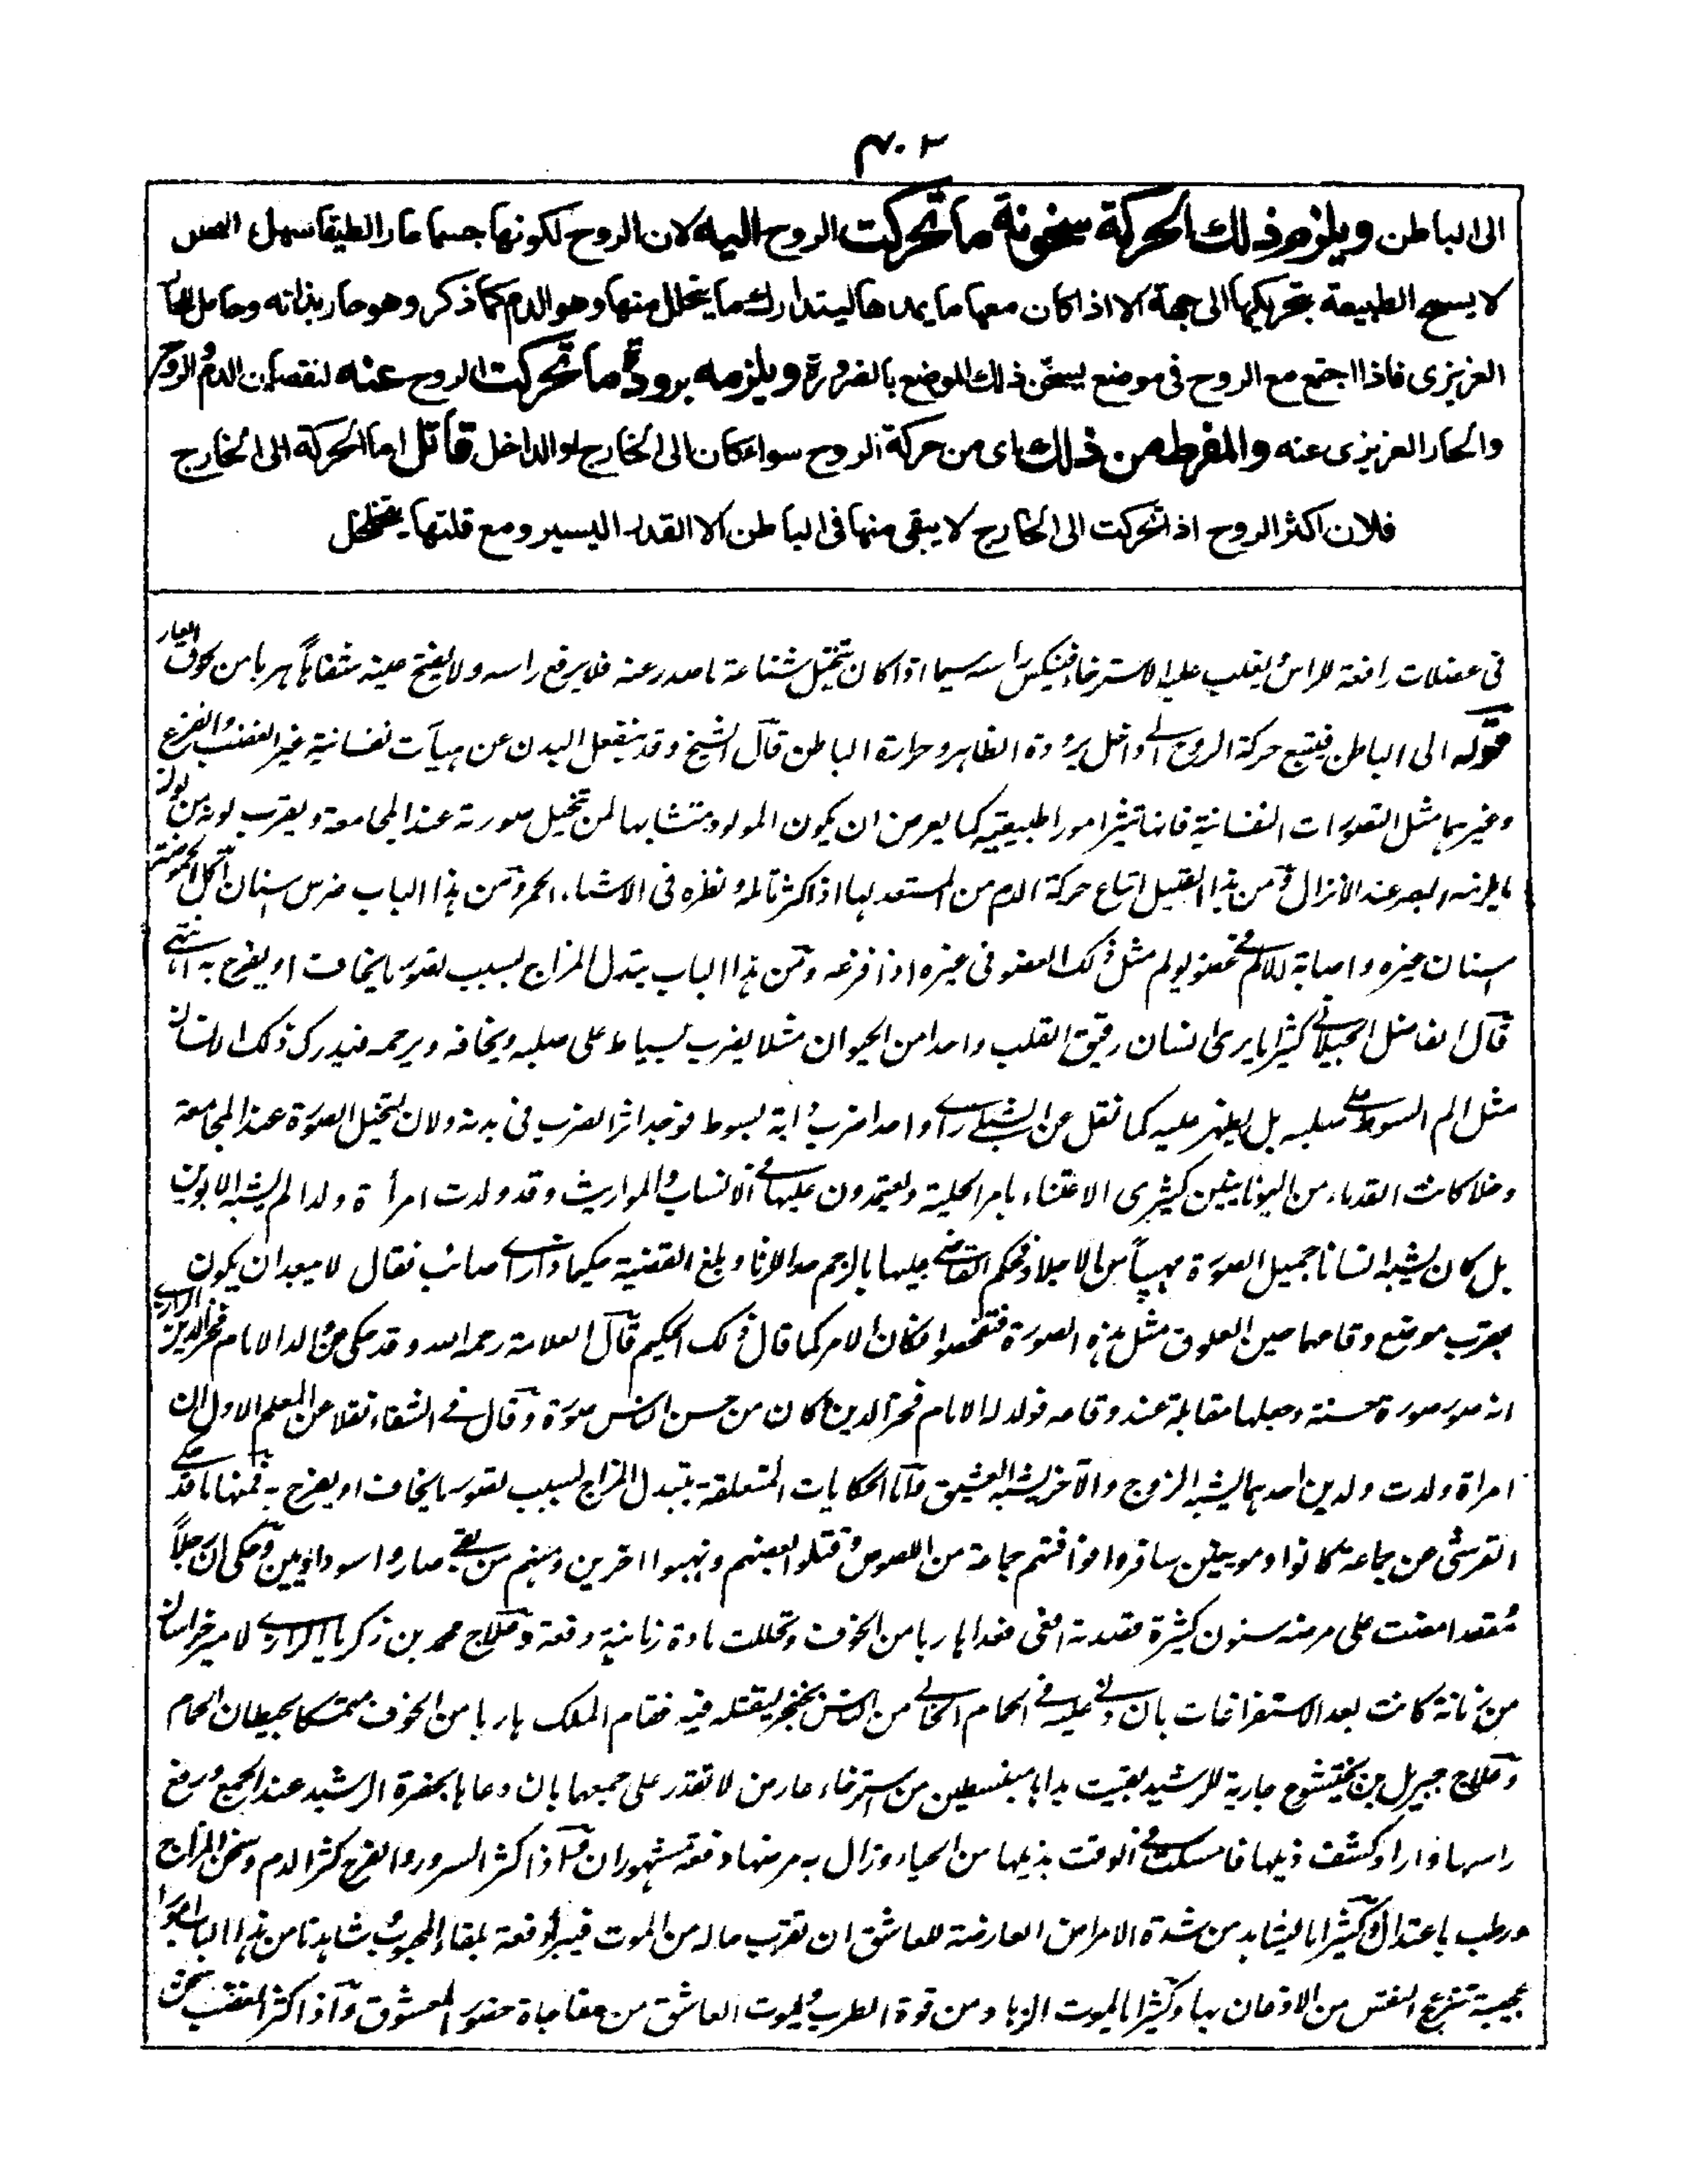 ۴۰۳
الى الباطن ويلزم ذلك الحركة سخونة ما تحركت الروح اليه لان الروح لكونها جسما حارا لطيفا سهل
لا يسمح الطبيعة بتحريكها الى جهة الا اذا كان معها ما يمدها ليتدارك ما يتحلل منها وهو الدم كما ذكر وهو حار بذاته وحامل للحار
الغريزى فاذا اجتمع مع الروح فى موضع يسخن ذلك الموضع بالضرورة ويلزمه برودة ما تحركت الروح عنه لنقصان الدم والروح
والحار الغريزى عنه والمفرط من ذلك اى من حركة الروح سواء كان الى الخارج او الداخل قاتل اما الحركة الى الخارج
فلان اكثر الروح اذا تحركت الى الخارج لا يبقى منها فى الباطن الا القدر اليسير ومع قلتها يتخلخل
فى عضلات رافعة للراس يغلب عليه الاسترخاء فينكس راسه سيما اذا كان يتخيل شناعة ما صدر عنه فلا يرفع راسه ولا يفتح عينه هربا من لحوق العار
قوله الى الباطن فيتبع حركة الروح الى داخل برودة الظاهر وحرارة الباطن قال الشيخ وقد ينفعل البدن عن هيآت نفسانية غير الغضب والفزع
وغيرهما مثل التصورات النفسانية فانها تثير امورا طبيعية كما يعرض ان يكون المولود متشابها لمن تخيل صورته عند المجامعة ويقرب لونه من لون
ما يلزمه البصر عند الانزال ومن هذا القبيل اتباع حركة الدم من المستعد لها اذا كثر تامله ونظره فى الاشياء الحمر ومن هذا الباب ضرس اسنان آكل الحموضة
اسنان غيره واصابة الالم فى عضو يولم مثل ذلك العضو فى غيره اذا فزعه ومن هذا الباب تبدل المزاج بسبب تصور ما يخاف او يفرح به انتهى
قال الفاضل الجيلانى كثيرا ما يرى انسان رقيق القلب واحدا من الحيوان مثلا يضرب بسياط على صلبه ويخافه ويرحمه فيدرك ذلك الانسان
مثل الم السوط على صلبه بل يظهر عليه كما نقل عن الشبلى راى واحدا ضرب دابة بسوط فوجد اثر الضرب فى بدنه ولان لتخيل الصورة عند المجامعة
دخلا كانت القدماء من اليونانيين كثيرى الاعتناء بامر الحلية ويعتمدون عليها فى الانساب والمواريث وقد ولدت امرأة ولدا لم يشبه الابوين
بل كان يشبه انسانا جميل الصورة مهيبا من الاجلاء فحكم القاضى عليها بالرجم حدا للزنا وبلغ القضية حكيما ذا راى صائب فقال لا يبعد ان يكون
بقرب موضع وقاعهما حين العلوق مثل هذه الصورة فتفحصوا فكان الامر كما قال ذلك الحكيم قال العلامة رحمه الله وقد حكى عن والد الامام فخر الدين الرازى
انه صور صورة حسنة وجعلها مقابلة عند وقاعه فولد له الامام فخر الدين كان من احسن الناس صورة وقال فى الشفاء نقلا عن المعلم الاول ان
امراة ولدت ولدين احدهما يشبه الزوج والآخر يشبه العشيق واما الحكايات المتعلقة بتبدل المزاج بسبب تصور ما يخاف او يفرح به فمنها ما قد حكى
القرشى عن جماعة كانوا دمويين سافروا فوافقتهم جماعة من اللصوص وقتلوا بعضهم ونهبوا اخرين ومنهم من بقى صاروا سوداويين وحكى ان رجلا
مقعدا مضت على مرضه سنون كثيرة فقصدته افعى فعدا هاربا من الخوف وتحللت مادة زمانية دفعة وعلاج محمد بن زكريا الرازى لامير خراسان
من زمانة كانت بعد الاستفراغات بان دخل عليه فى الحمام الخالى من الناس بخنجر ليقتله فيه فقام الملك هاربا من الخوف متمسكا بحيطان الحمام
وعلاج جبريل بن بختيشوع جارية للرشيد بقيت يداها منبسطين من استرخاء عارض لا تقدر على جمعها بان دعاها بحضرة الرشيد عند الجمع ورفع
راسها واراد كشف ذيلها فامسكت فى الوقت بذيلها من الحياء وزال به مرضها دفعة مشهوران واذا كثر السرور والفرح كثر الدم وسخن المزاج
ورطب باعتدال وكثيرا ما يشاهد من شدة الامراض العارضة للعاشق ان تقرب حاله من الموت فيبرأ دفعة بلقاء المحبوب وشاهدنا من هذا الباب امورا
عجيبة تنفرع النفس من الاذعان بها وكثيرا ما يموت الزهاد من قوة الطرب ويموت العاشق من مفاجاة حضور المعشوق واذا كثر الغضب سخن